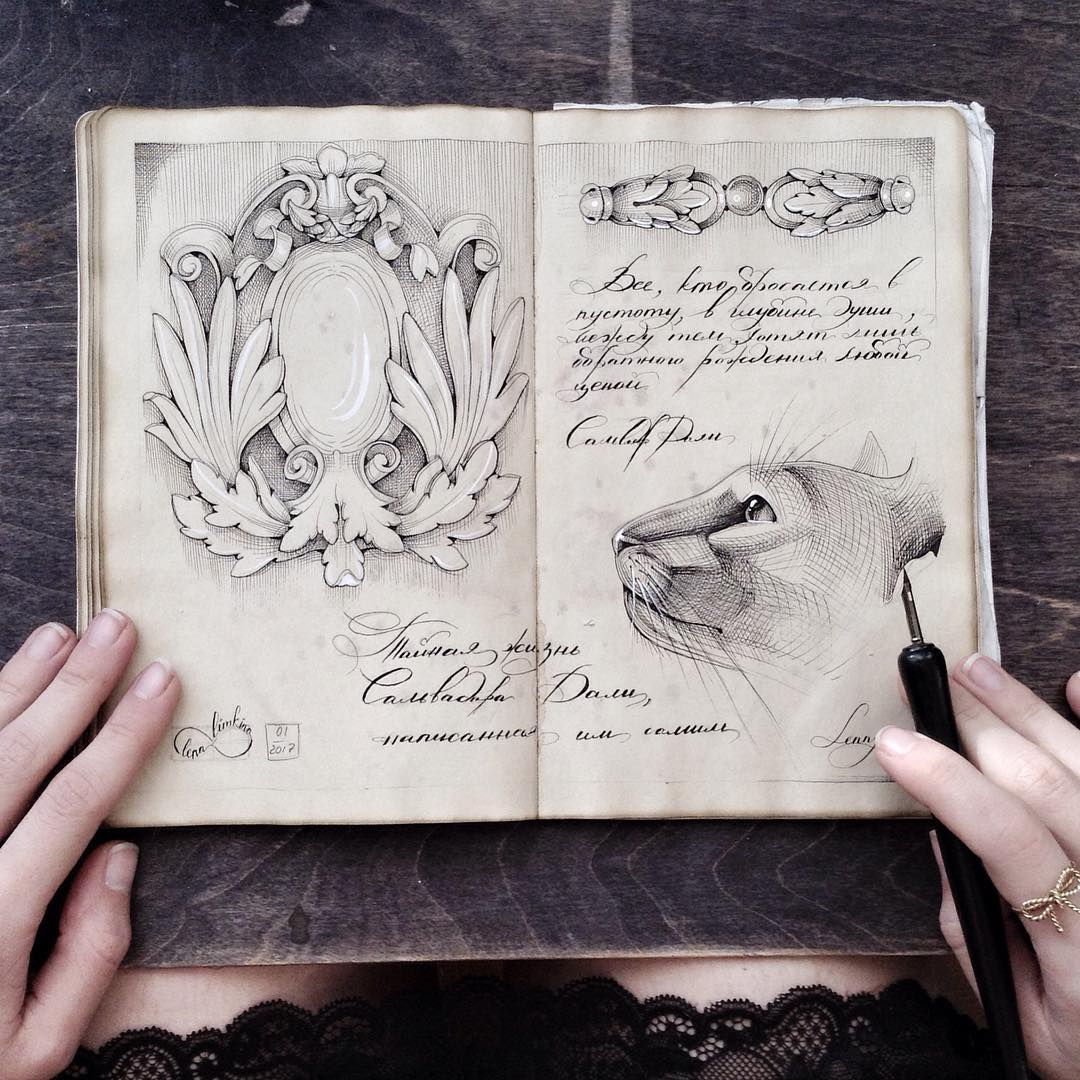 Все, кто бросается в
пустоту, в глубине души,
между тем хотят лишь
обратного рождения любой
ценой
Сальвадор Дали
Тайная жизнь
Сальвадора Дали,
написанная им самим
lena limkina
01
2017
Lenny